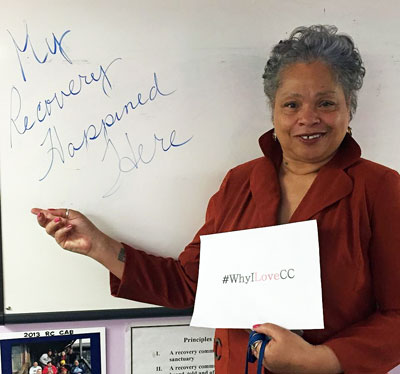 My
Recovery
Happined
Here
#WhyILoveCC
2013 RC CAB
Principles
I. A recovery
sanctuary
II. A recovery